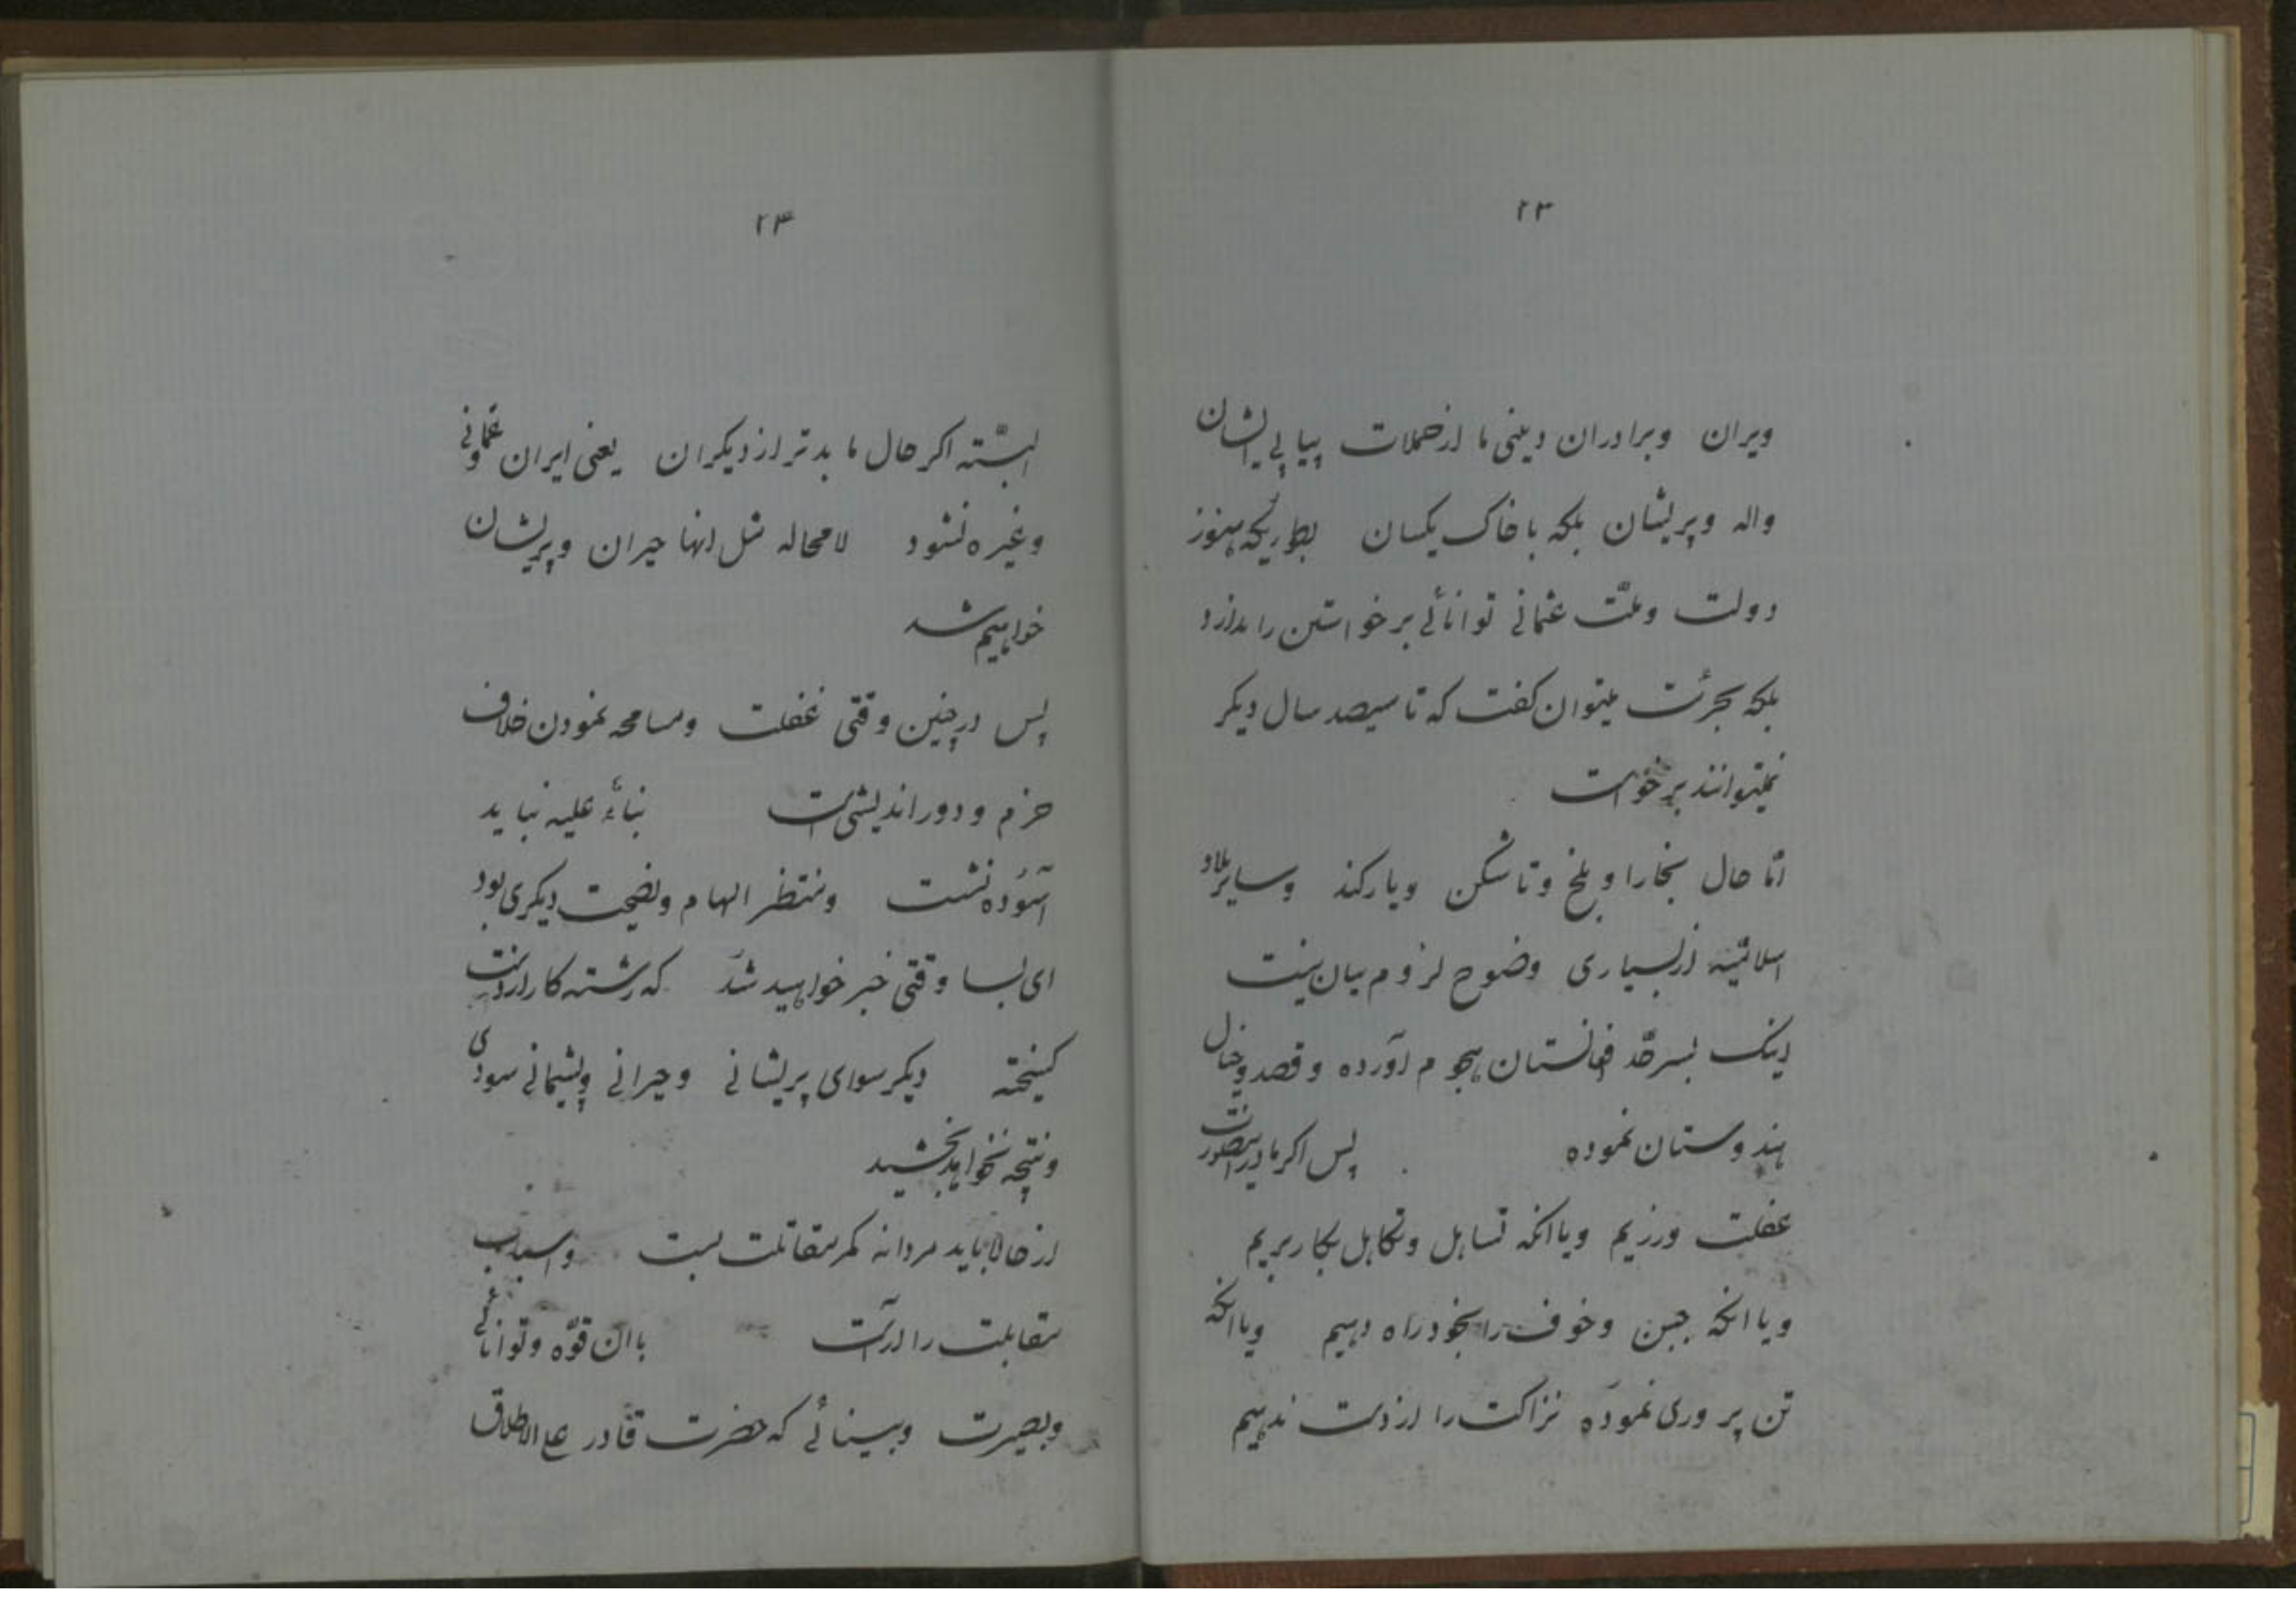 ۲۳
ویران وبرادران دینی ما از حملات پیاپی ایشان
واله وپریشان بلکه با خاک یکسان بطوریکه هنوز
دولت وملّت عثمانی توانائی برخواستن را ندارد
بلکه بجرئت میتوان کفت که تا سیصد سال دیکر
نمیتوانند برخواست
امّا حال بخارا و بلخ وتاشکن ویارکند وسایر بلاد
اسلامیّه از بسیاری وضوح لزوم بیان نیست
اینک بسرحدّ افغانستان هجوم آورده وقصد وخیال
هندوستان نموده پس اکر ما در اینصورت
غفلت ورزیم ویا انکه تساهل وتکاهل بکار بریم
ویا انکه جبن وخوف را بخود راه دهیم ویا انکه
تن پروری نموده نزاکت را از دست ندهیم
۲۴
البتّه اکر حال ما بدتر از دیکران یعنی ایران وعثمانی
وغیره نشود لامحاله مثل انها حیران وپریشان
خواهیم شد
پس در چنین وقتی غفلت ومسامحه نمودن خلاف
حزم ودوراندیشی است بناءً علیه نباید
آسوده نشست ومنتظر الهام ونصیحت دیکری بود
ای بسا وقتی خبر خواهید شد که رشته کار از دست
کسیخته دیکر سوای پریشانی وحیرانی وپشیمانی سودی
ونتیجه نخواهد بخشید
از حالا باید مردانه کمر مقاتلت بست واسباب
مقابلت را آراست با ان قوّه وتوانائی
وبصیرت وبینائی که حضرت قادر علی الاطلاق